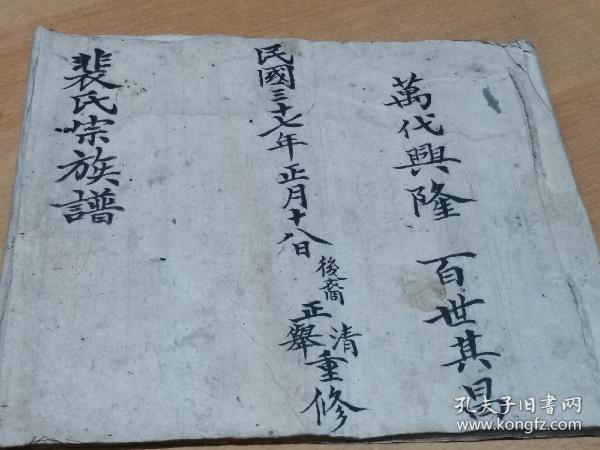 萬代興隆 百世其昌
民國三十七年正月十八日 後裔 正舉 清 重修
裴氏宗族譜
孔夫子旧书网
www.kongfz.com